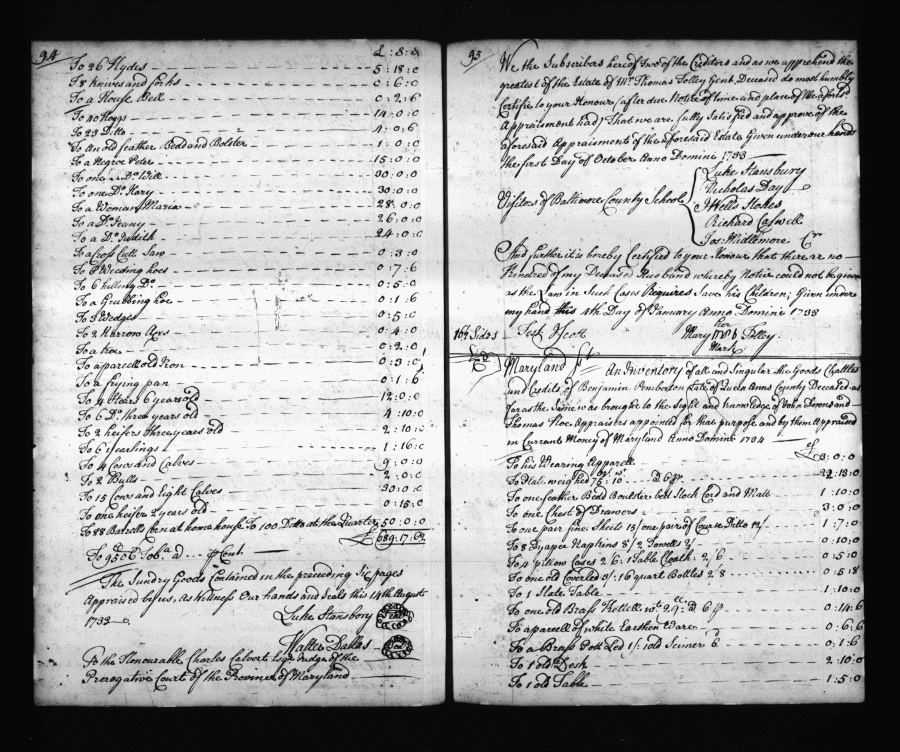 94
£ : s : d
To 26 Hydes 5 : 18 : 0
To 8 Knives and forks 0 : 6 : 0
To a House Bell 0 : 2 : 6
To 40 Hoggs 14 : 0 : 0
To 23 Ditto 4 : 0 : 6
To An old feather Bedd and Bolster 1 : 0 : 0
To a Negroe Peter 15 : 0 : 0
To one Do. Will 30 : 0 : 0
To one Do. Harry 30 : 0 : 0
To a Woman Maria 28 : 0 : 0
To a Do. Jeany 26 : 0 : 0
To a Do. Judith 24 : 0 : 0
To a Cross Cutt Saw 0 : 3 : 0
To 6 Weeding hoes 0 : 7 : 6
To 6 hilling Do. 0 : 5 : 0
To a Grubbing hoe 0 : 1 : 6
To 3 Wedges 0 : 5 : 0
To 2 Narrow Axes 0 : 4 : 0
To a 0 : 2 : 0
To a parcell old Iron 0 : 3 : 0
To a frying pan 0 : 1 : 6
To 4 Stears 6 years old 12 : 0 : 0
To 6 Do. three years old 4 : 10 : 0
To 2 heifers three years old 2 : 10 : 0
To 6 yearlings 1 : 16 : 0
To 4 Cows and Calves 9 : 0 : 0
To 2 Bulls 2 : 0 : 0
To 15 Cows and Eight Calves 30 : 0 : 0
To one heifer 2 years old 0 : 15 : 0
To 88 Barrells Corn at home house To 100 Ditto at the Quarter 50 : 0 : 0
£689 : 17 : 6½
To 9506 Tobo. a d p Cent
The Sundry Goods Contained in the preceding Six pages
Appraised by us, As Witness Our hands and Seals this 14th August
1733
Luke Stansbury
Walter Dallas
To the Honourable Charles Calvert Esqr Judge of the
Prerogative Court of the Province of Maryland
95
We the Subscribers hereof Two of the Creditors and as we apprehend the
greatest of the Estate of Mr. Thomas Tolley Gent Deceased do most humbly
Certifie to your Honour (after due Notice of time and place of the aforesd
Appraisment had) That we are fully Satisfied and approve of the
aforesaid Appraisment of the aforesaid Estate Given under our hands
the first Day of October Anno Domini 1733
Visitors of Baltimore County School
Luke Stansbury
Nicholas Day
Wells Stokes
Richard Caswell
Jos: Middlemore Cr
And further it is hereby Certified to your Honour that there are no
Kindred of my Deceased Husband whereby Notice could not be given
as the Law in Such Cases Requires Save his Children; Given under
my hand this 4th Day of January Anno Domini 1733
16½ Sides
Test
her
Mary Tolley
Mark
Maryland Sst An Inventory of all and Singular the Goods Chattles
and Credits of Benjamin Pemberton late of Queen Anns County Deceased as
far as the Same was brought to the Sight and knowledge of John Downs and
Thomas Noe Appraisers appointed for that purpose and by them Appraised
in Current Money of Maryland Anno Domini 1734
£
To his Wearing Apparell 3 : 0 : 0
To Plate weighed 75 : 10 a 6 p 22 : 13 : 0
To one feather Bedd Boulster Bed Stock Cord and Matt 1 : 10 : 0
To one Chest of Drawers 3 : 0 : 0
To one pair fine Sheets 15/ one pair of Course Ditto 12/ 1 : 7 : 0
To 8 Dyaper Napkins 8/ 2 Towells 2/ 0 : 10 : 0
To 4 pillow Cases 2/6 : 1 Table Cloath : 2/6 0 : 5 : 0
To one old Coverled 3/ : 16 quart Bottles 2/8 0 : 5 : 8
To 1 Slate Table 1 : 10 : 0
To one old Brass Kettell wt. 29 : a 6 p 0 : 14 : 6
To a parcell of white Earthen Ware 0 : 6 : 6
To a Brass Pott Led 1/ : 1 old Scimer 6d 0 : 1 : 6
To 1 old Desk 2 : 10 : 0
To 1 old Table 1 : 5 : 0